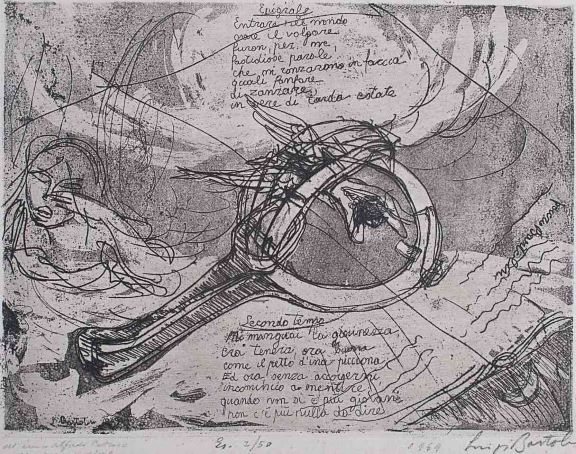 Epigrafe
Entrare nel mondo
ove il volgare
furon, per me,
fastidiose parole,
che mi ronzarono in faccia
quali fanfare
di zanzare,
in sere di tarda estate
Secondo tempo
Mi mangiai la giovinezza,
ora tenera, ora buona
come il petto d'una picciona
Ed ora senza accorgermi
incomincio a mentire
quando non si è più giovani
non c'è più nulla da dire
Es. 2/50
1959 Luigi Bartolini